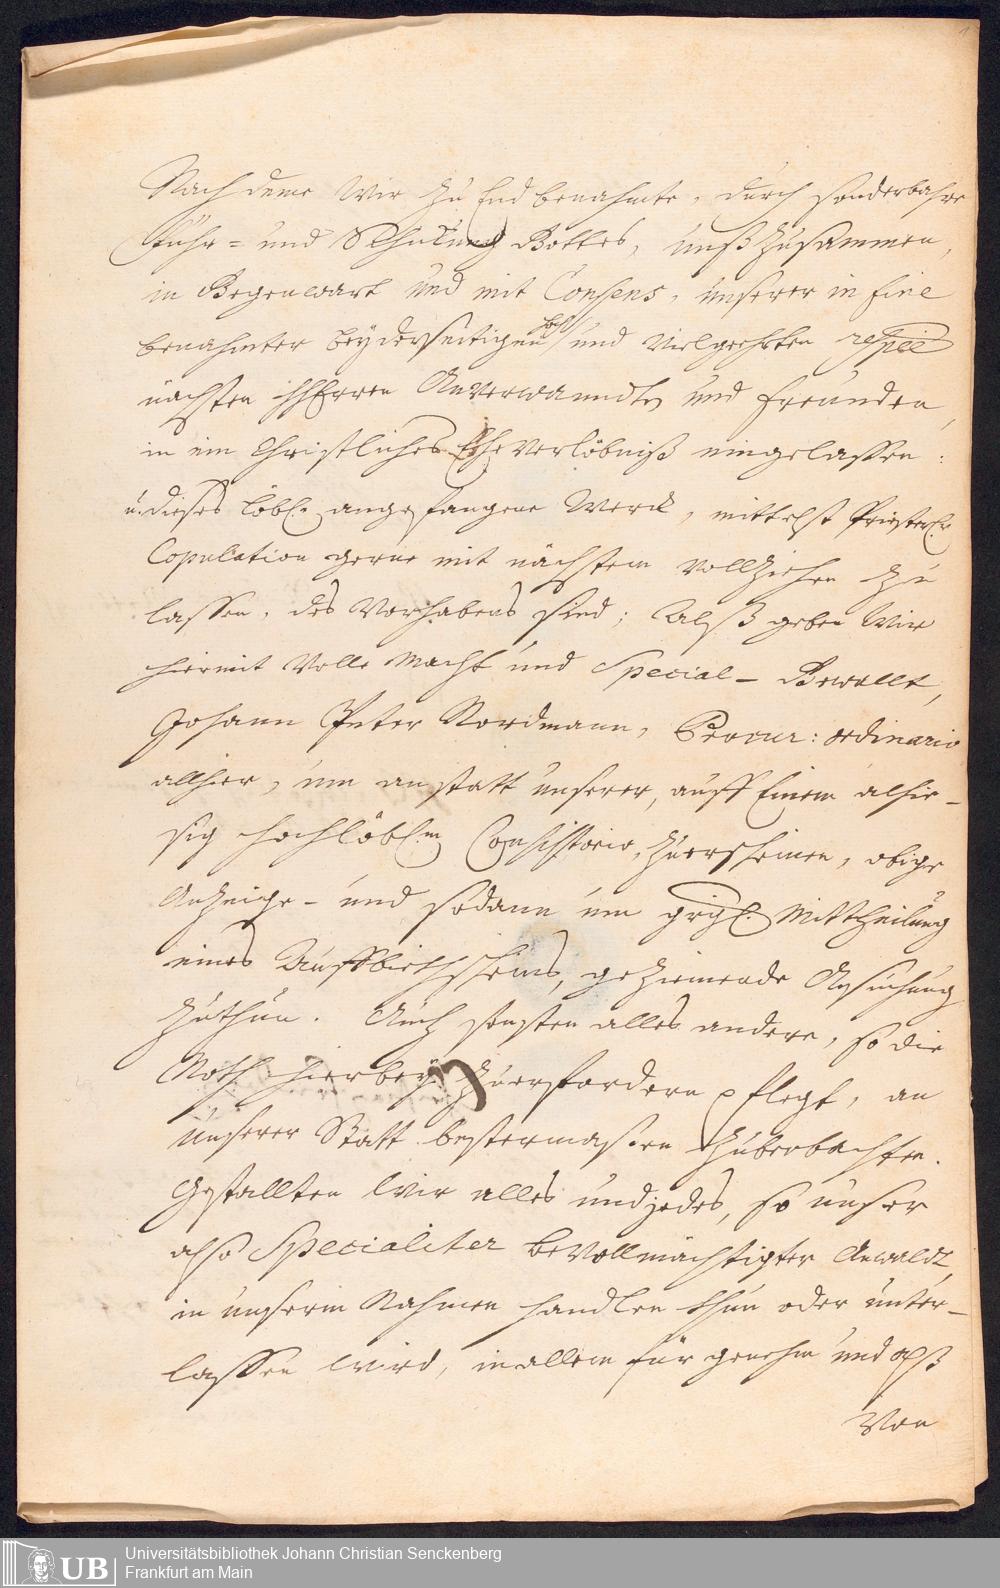 Nach deme Wir zu End benahmte, durch sonderbahre
Führ- und Schickung Gottes, unß zusammen,
in Gegenwart und mit Consens, unserer in fine
benahmter beyderseitigen hoch und vielgeehrten respée
nächsten HhErren Anverwanndten und Freunden,
in ein Christliches EheVerlöbniß eingelassen:
u. dieses löbl. angefangene Werck, mittelst Priesterl.r
Copulation gerne mit nächstem vollziehen zu
lassen, des Vorhabens sind; Alß geben Wir
hiermit Volle Macht und Special- Gewallt,
Johann Peter Nordmann, Procur: ordinario
allhier, um anstatt unserer, auff Einem alhie-
sig Hochlöbl.m Consistorio, zuerscheinen, obige
Anzeige- und sodann um grgl. Mittheilung
eines Auffbiethscheins, geziemende Ansuchung
zuthun. Auch sonsten alles andere, so die
Noth hierbey zuerfordern pflegt, an
unserer Statt bestermasen zubeobachten.
Gestallten Wir alles und jedes, so unser
also Specialiter beVollmächtigter Anwaldt,
in unserm Nahmen handlen thun oder unter-
lassen wird, in allem für genehm und alß
Von
Universitätsbibliothek Johann Christian Senckenberg
Frankfurt am Main
UB